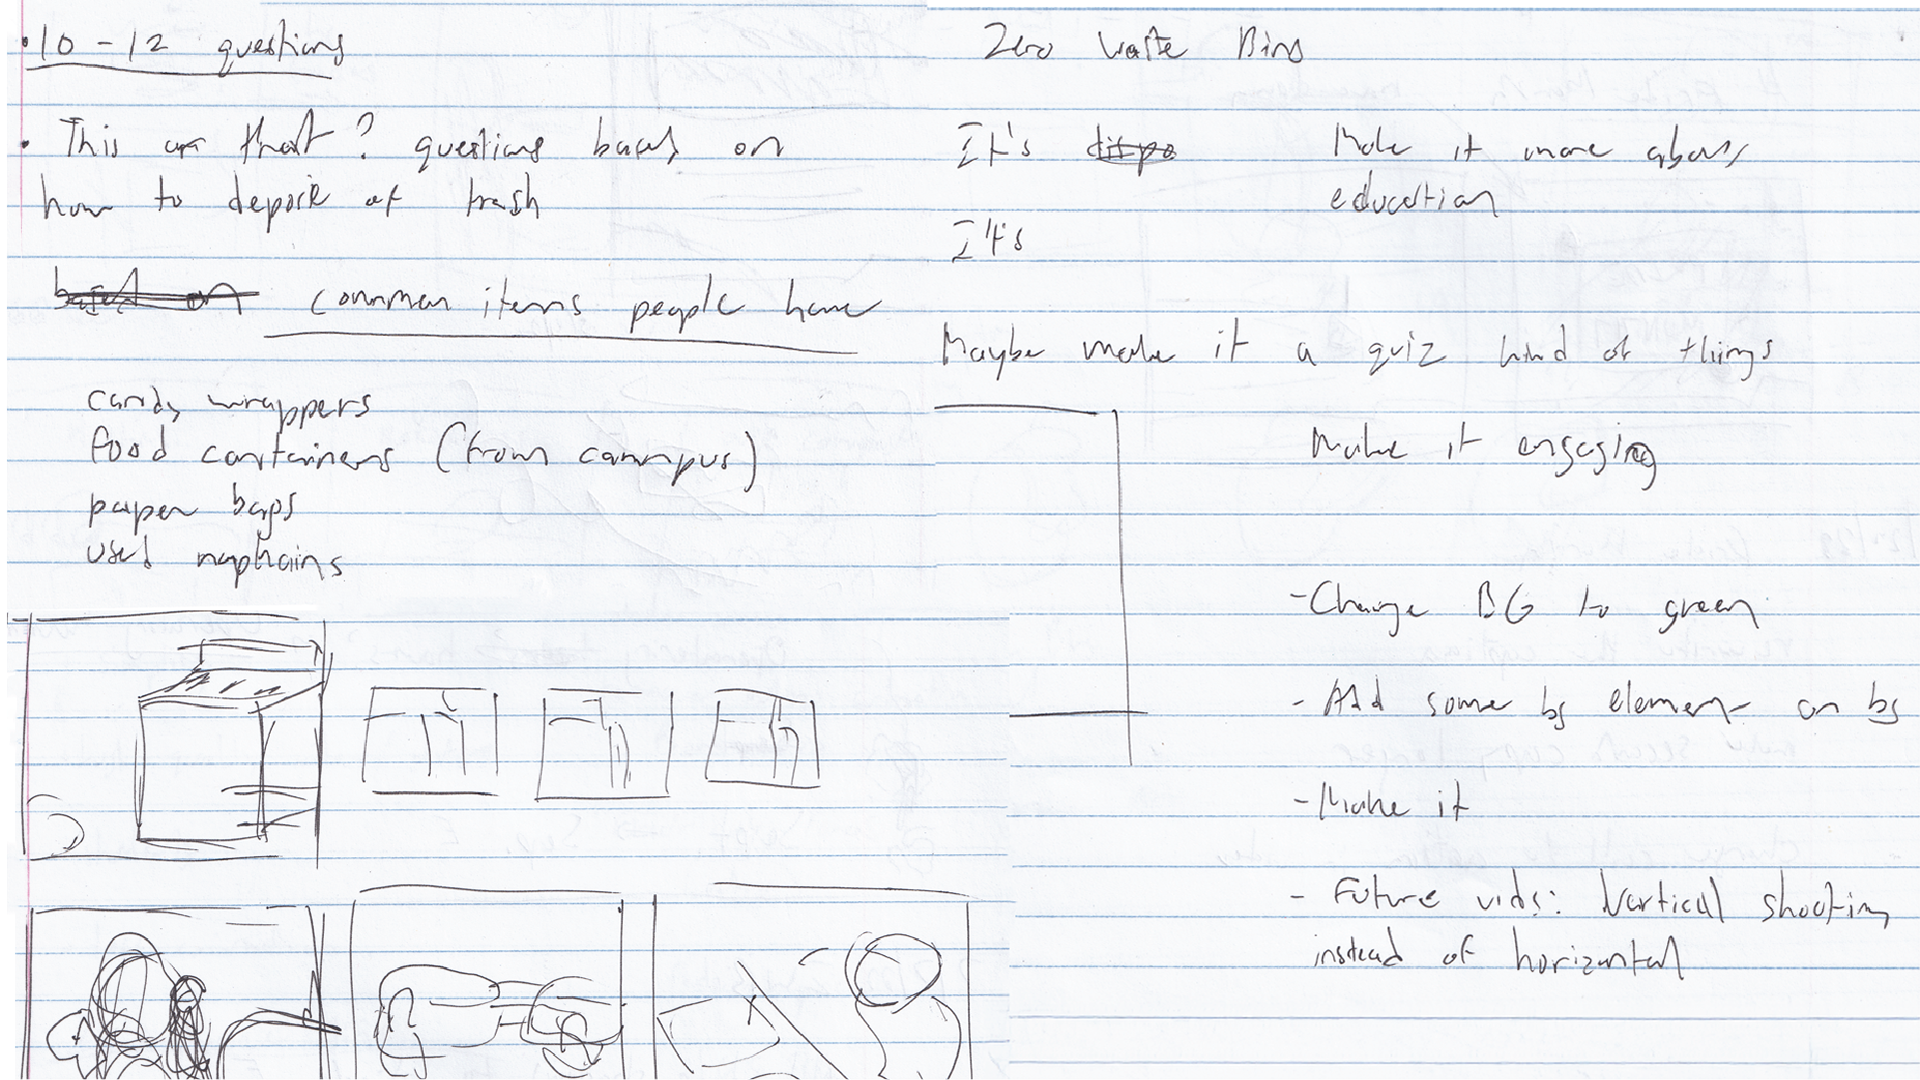 • 10 - 12 questions
• This or that? questions based on
how to deposit of trash
based on common items people have
candy wrappers
food containers (from campus)
paper bags
used naphains
Zero Waste Bins
It's dispo
Make it more about
education
It's
Maybe make it a quiz kind of things
Make it engaging
- Change BG to green
- Add some bg element on bg
- Make it
- Future vids: Vertical shooting
instead of horizontal